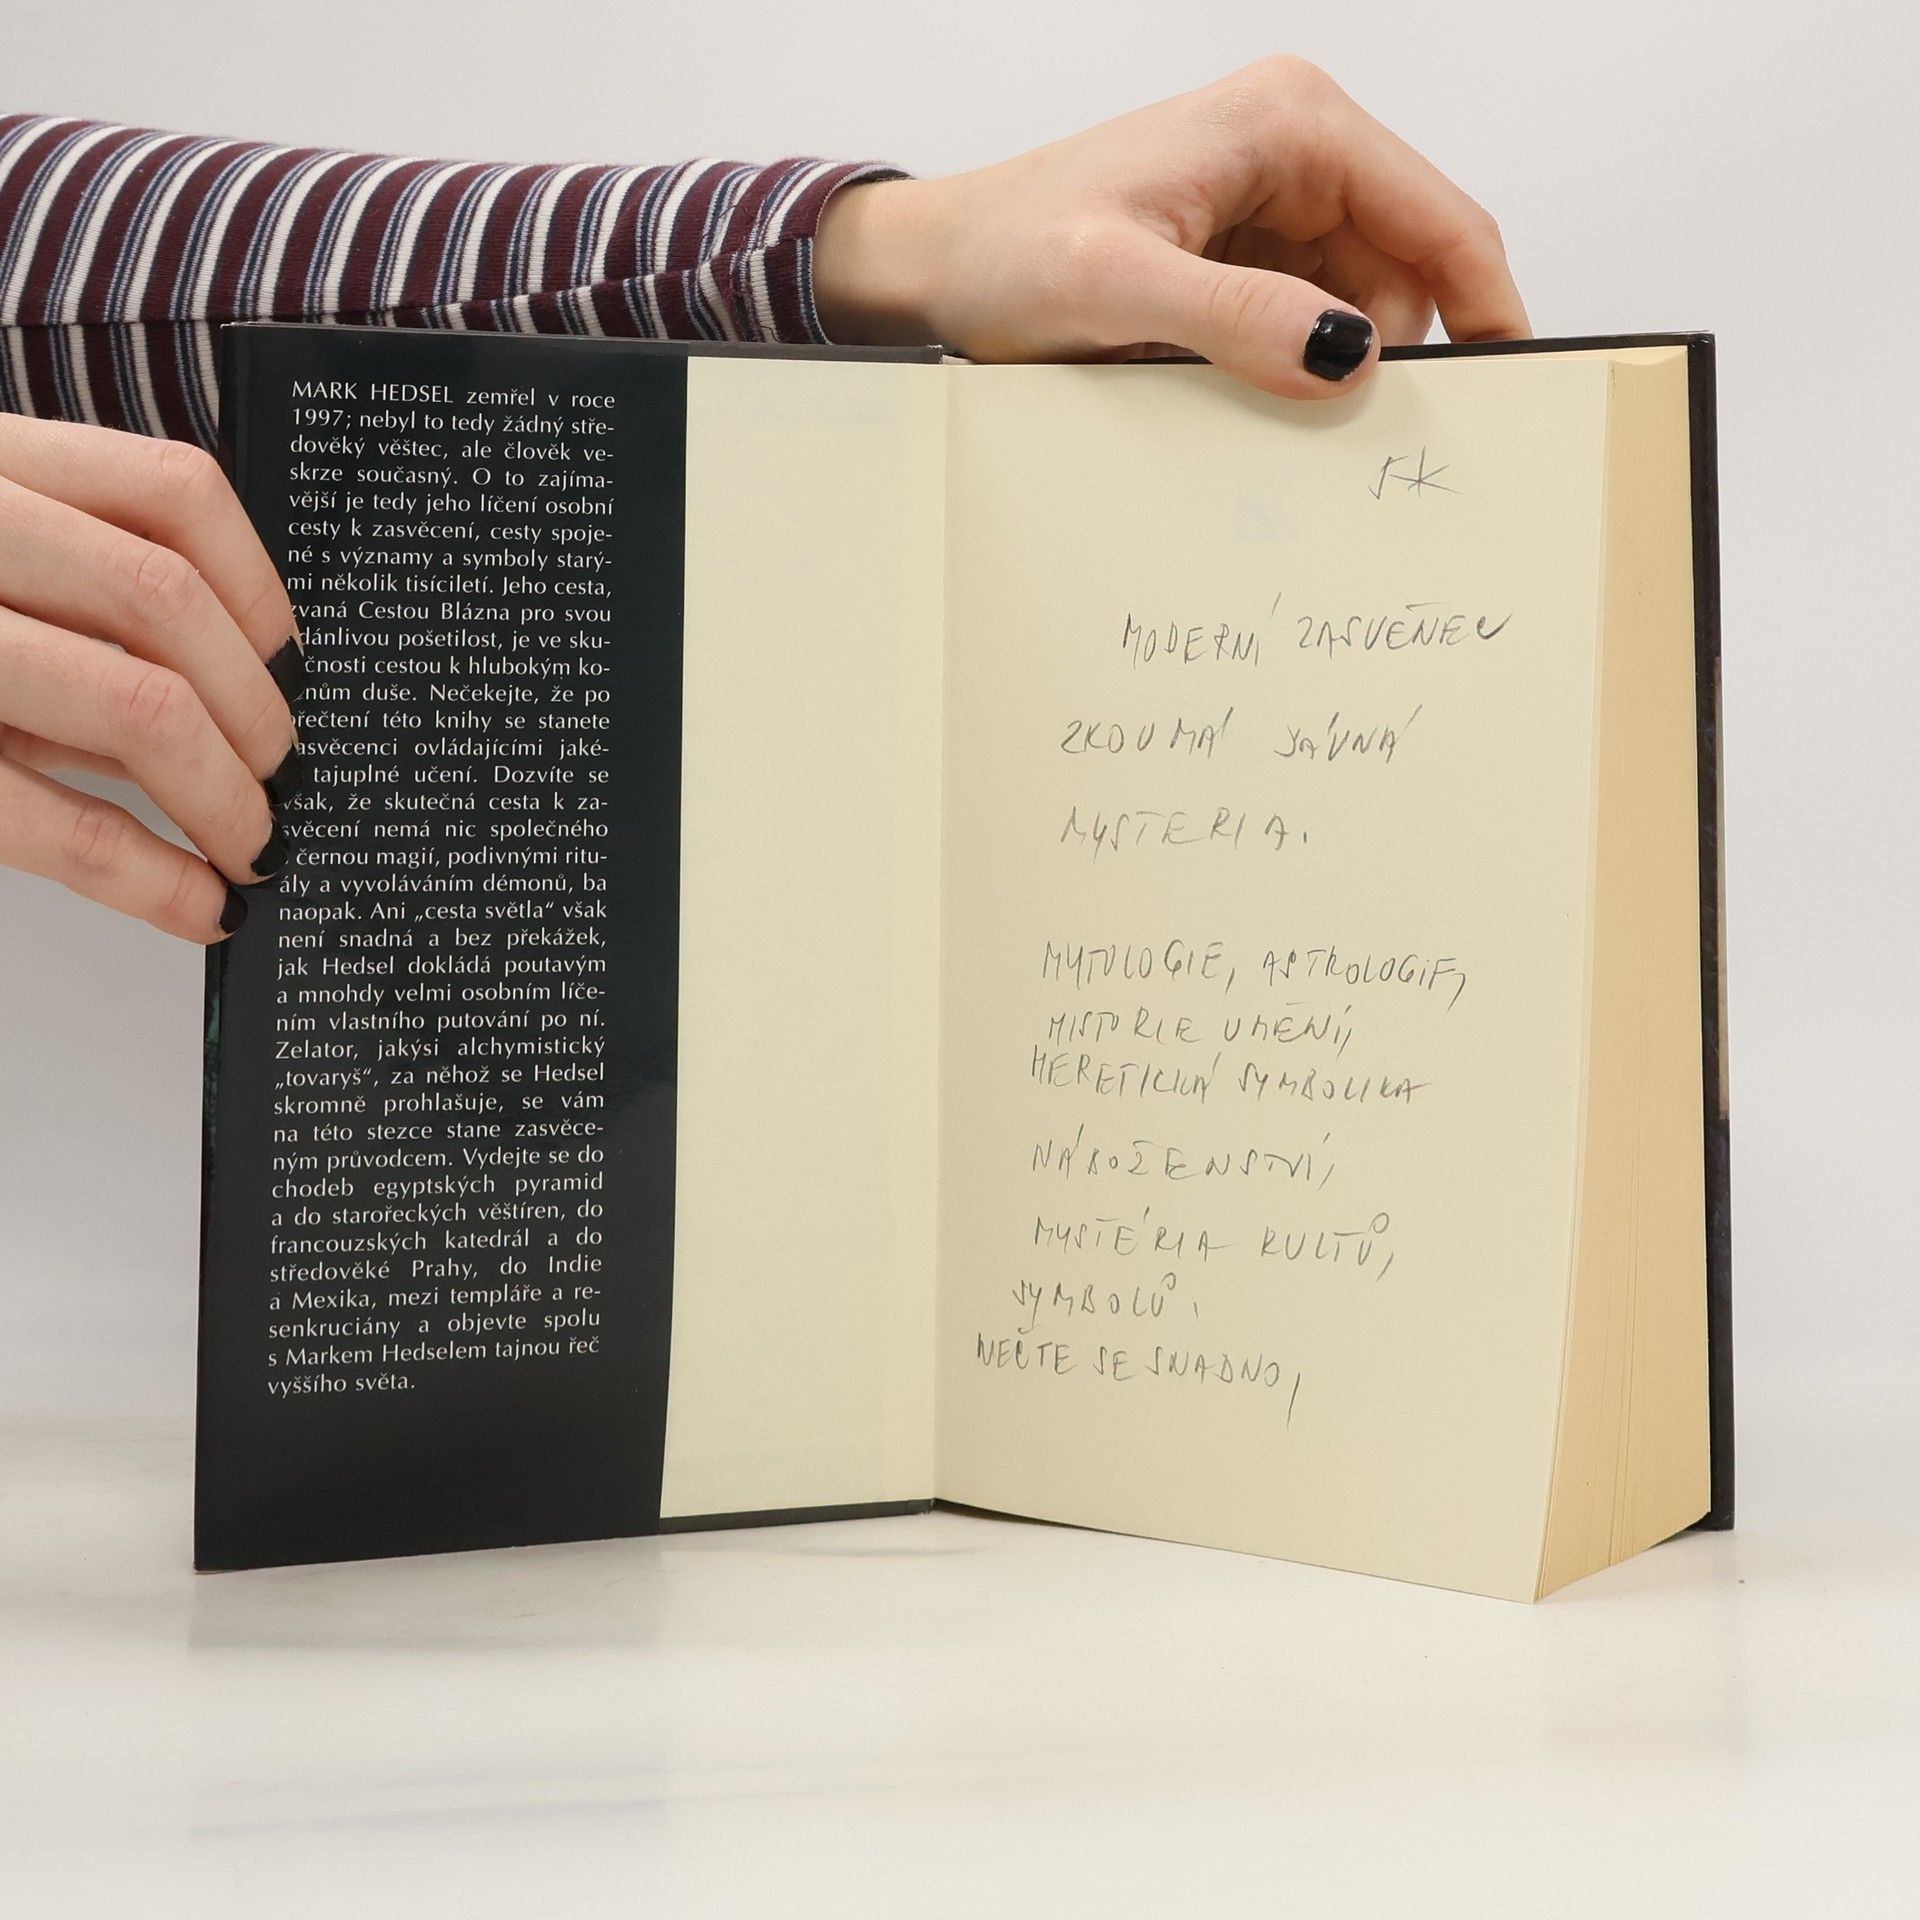 MARK HEDSEL zemřel v roce
1997; nebyl to tedy žádný stře-
dověký věštec, ale člověk ve-
skrze současný. O to zajíma-
vější je tedy jeho líčení osobní
cesty k zasvěcení, cesty spoje-
né s významy a symboly starý-
mi několik tisíciletí. Jeho cesta,
zvaná Cestou Blázna pro svou
dánlivou pošetilost, je ve sku-
čnosti cestou k hlubokým ko-
nům duše. Nečekejte, že po
přečtení této knihy se stanete
asvěcenci ovládajícími jaké-
tajuplné učení. Dozvíte se
však, že skutečná cesta k za-
svěcení nemá nic společného
černou magií, podivnými ritu-
ály a vyvoláváním démonů, ba
naopak. Ani „cesta světla“ však
není snadná a bez překážek,
jak Hedsel dokládá poutavým
a mnohdy velmi osobním líče-
ním vlastního putování po ní.
Zelator, jakýsi alchymistický
„tovaryš“, za něhož se Hedsel
skromně prohlašuje, se vám
na této stezce stane zasvěce-
ným průvodcem. Vydejte se do
chodeb egyptských pyramid
a do starořeckých věštíren, do
francouzských katedrál a do
středověké Prahy, do Indie
a Mexika, mezi templáře a re-
senkruciány a objevte spolu
s Markem Hedselem tajnou řeč
vyššího světa.
MODERNÍ
ZKOUMÁ
MYSTERIA.
MYTOLOGIE, ASTROLOGIE,
HISTORIE UMĚNÍ,
HERETICKÁ SYMBOLIKA
NÁBOŽENSTVÍ,
MYSTÉRIA KULTŮ,
SYMBOLŮ.
NEČTE SE SNADNO,